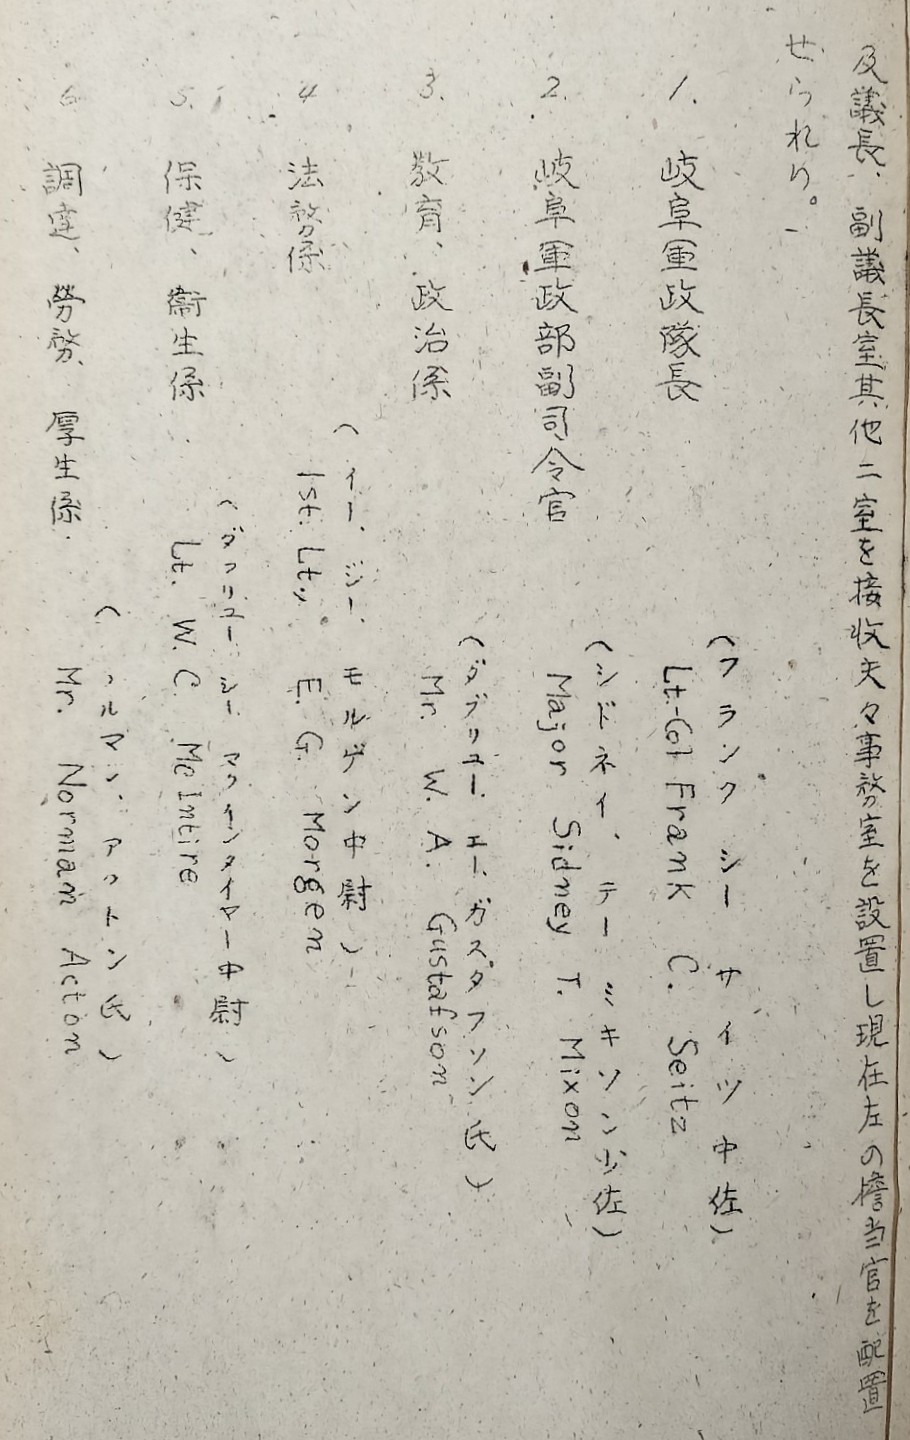 及議長、副議長室其他二室を接收夫々事務室を設置し現在左の擔当官を配置
せられり。
1. 岐阜軍政隊長
(フランク シー サイツ中佐)
Lt-Col Frank C. Seitz
2. 岐阜軍政部副司令官
(シドネイ、テー ミキソン少佐)
Major Sidney T. Mixon
3. 教育、政治係
(ダブリユー、エー、ガスタフソン氏)
Mr. W. A. Gustafson
4 法務係
(イー、ジー、モルゲン中尉)
1st. Lt., E. G. Morgen
5. 保健、衞生係
(ダブリユー、シー、マクインタイヤー中尉)
Lt. W. C. McIntire
6 調達、勞務、厚生係
(ノルマン、アクトン氏)
Mr. Norman Acton